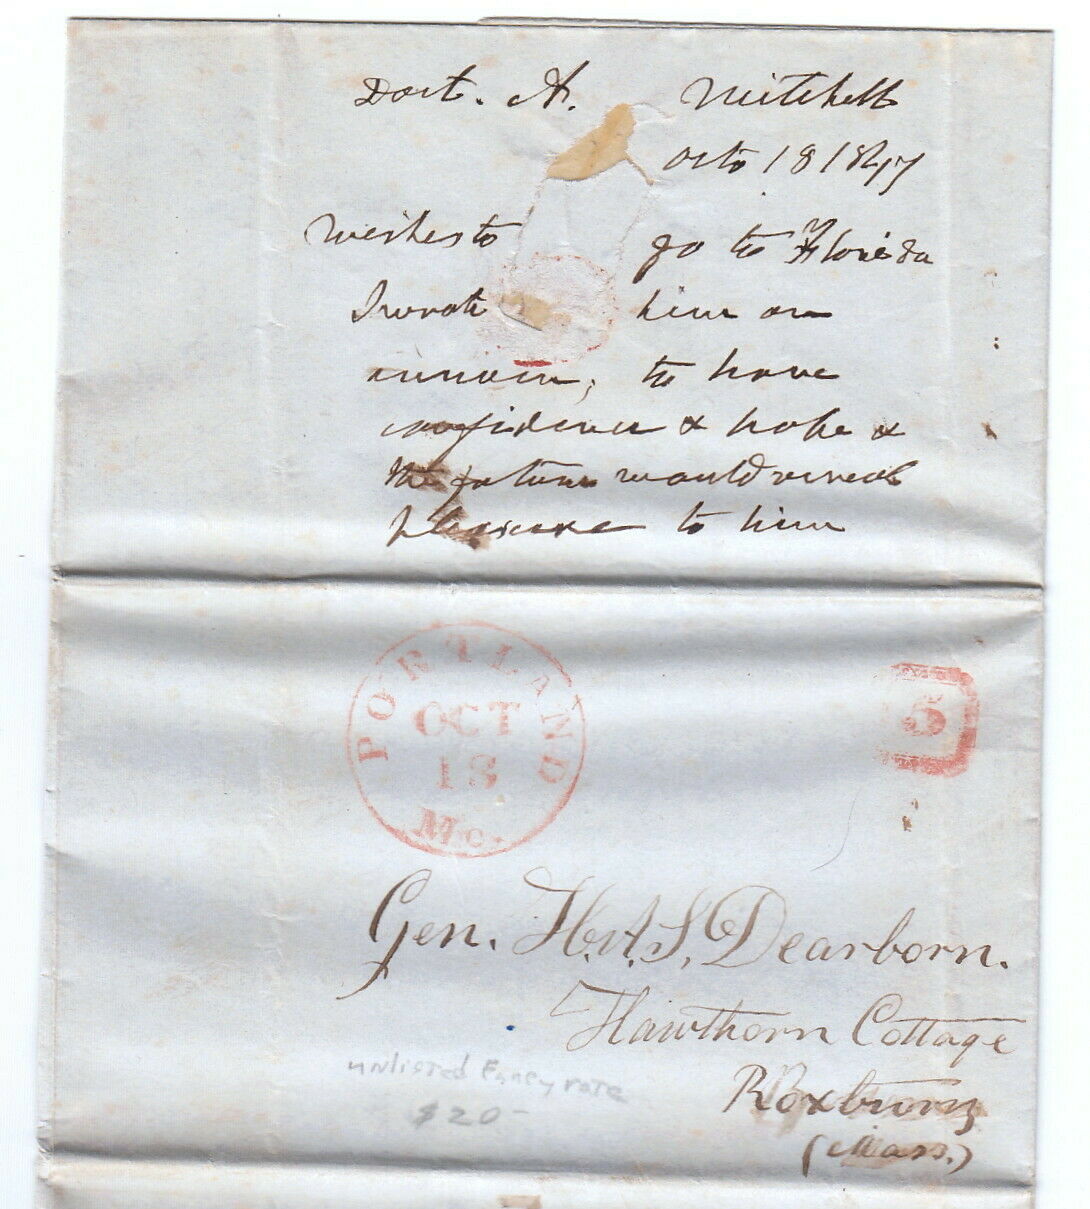 Doct. A. Mitchell
Octo 18 1847
Wishes to go to Florida
I wrote him an
, to have
confidence & hope &
the future would reveal
pleasure to him
PORTLAND
OCT
18
Me.
5
Gen. H. A. S. Dearborn.
Hawthorn Cottage
Roxbury
(Mass.)
unlisted Fancy rate
$20-